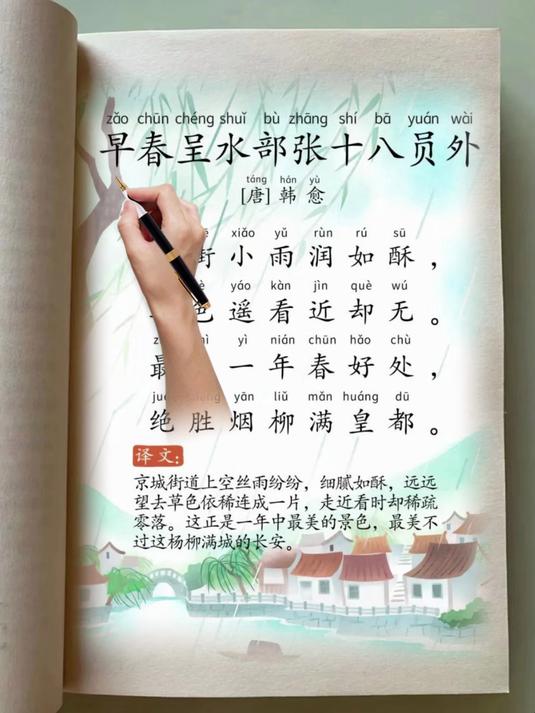 zǎo chūn chéng shuǐ bù zhāng shí bā yuán wài
早春呈水部张十八员外
táng hán yù
[唐] 韩愈
xiǎo yǔ rùn rú sū
街小雨润如酥，
yáo kàn jìn què wú
色遥看近却无。
yì nián chūn hǎo chù
最一年春好处，
yān liǔ mǎn huáng dū
绝胜烟柳满皇都。
译文：
京城街道上空丝雨纷纷，细腻如酥，远远
望去草色依稀连成一片，走近看时却稀疏
零落。这正是一年中最美的景色，最美不
过这杨柳满城的长安。